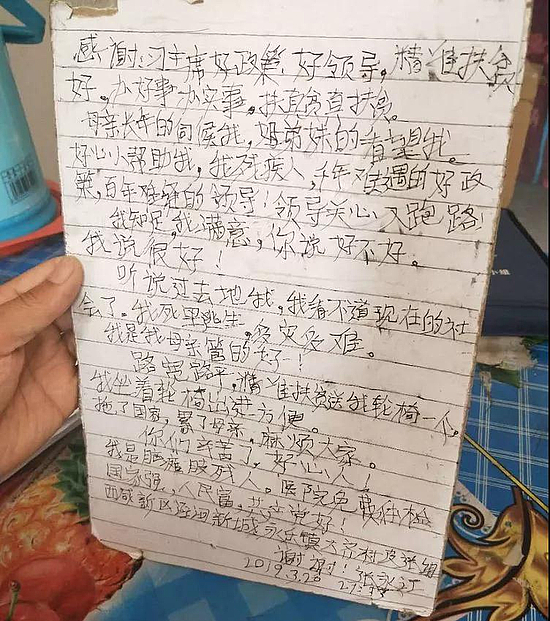 感谢:习主席好政策!好领导,精准扶贫
好。办好事办实事,扶真贫真扶贫。
母亲长年的伺候我,兄弟妹的看望我。
好心人帮助我,我残疾人,千年难遇的好政
策,百年难的领导!领导关心人跑路!
我知足,我满意,你说好不好。
我说很好!
听说过去地我,我看不道现在的社
会了。我死里逃生,多灾多难。
我是我母亲的好!
路宽路平,精准扶贫送我轮椅一个。
我坐着轮椅出进方便。
拖了国家,累了母亲,麻烦大家。
你们辛苦了,好心人!
我是脑瘫肢残人。医院免
国家强,人民富,共产党好!
西咸新区泾河新城永乐镇大村皮张组
谢谢!张
2019.3.20